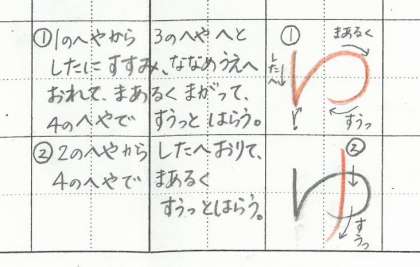 ①1のへやから 3のへやへと
したに すすみ、ななめうえへ
おれて、まあるく まがって、
4のへやで すうっと はらう。
①
まあるく
したへ
すうっ
②2のへやから したへおりて、
4のへやで まあるく
すうっとはらう。
②
すうっ